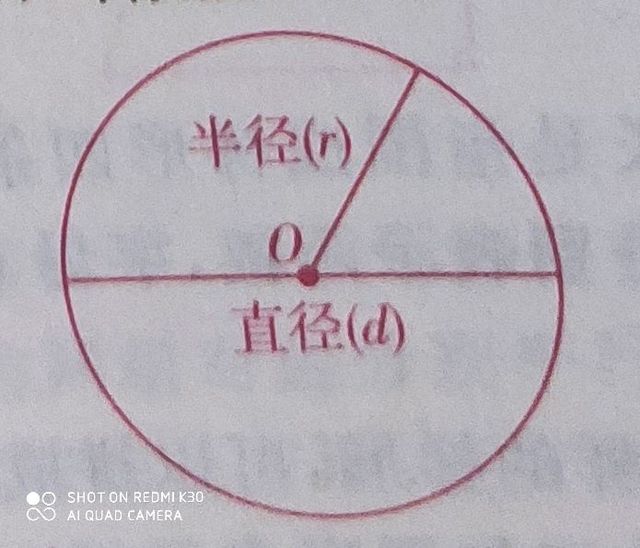 半径(r)
O
直径(d)
SHOT ON REDMI K30
AI QUAD CAMERA